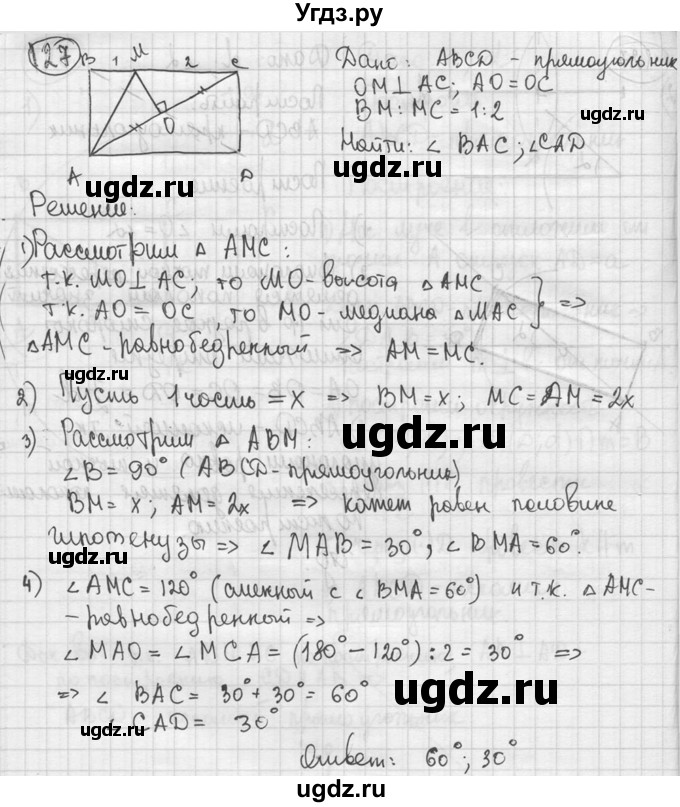 Угдз.ру
127
B 1 M 2 C
O
A D
Дано: ABCD - прямоугольник
OM⊥AC; AO=OC
BM:MC = 1:2
Найти: ∠ BAC; ∠CAD
ugdz.ru
ugdz.ru
Решение:
ugdz.ru
1) Рассмотрим △ AMC:
т.к. MO⊥AC; то MO-высота △AMC
тк. AO = OC, то MO-медиана △MAC } =>
△AMC-равнобедренный => AM=MC.
ugdz.ru
2) Пусть 1 часть = x => BM=x; MC=AM=2x
3) Рассмотрим △ ABM:
ugdz.ru
∠B=90° (ABCD-прямоугольник)
BM=x; AM=2x => катет равен половине
гипотенузы => ∠MAB=30°; ∠BMA=60°.
ugdz.ru
4) ∠AMC=120° (смежный с ∠BMA=60°) и т.к. △AMC-
-равнобедренный =>
∠MAO=∠MCA=(180°-120°):2=30° =>
=> ∠ BAC= 30°+30°= 60°
ugdz.ru
∠CAD= 30°
ugdz.ru
Ответ: 60°; 30°
ugdz.ru